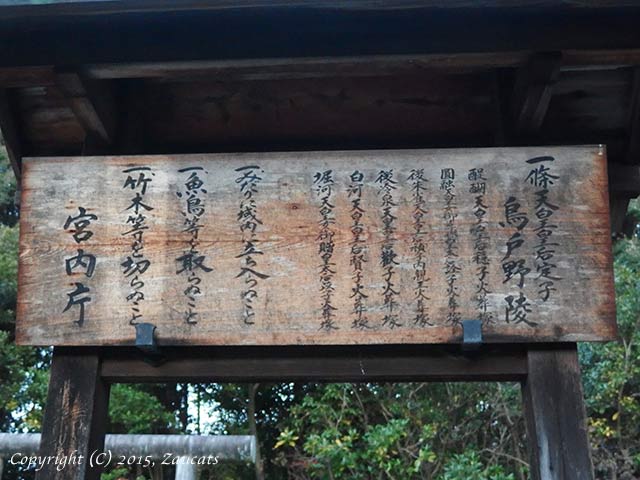 一條天皇皇后定子
鳥戸野陵
醍醐天皇皇后穏子火葬塚
圓融天皇女御皇太后詮子火葬塚
後朱雀天皇皇后禎子内親王火葬塚
後冷泉天皇皇后歡子火葬塚
白河天皇皇后賢子火葬塚
堀河天皇女御贈皇太后苡子火葬塚
一みだりに域内に立ち入らぬこと
一魚鳥等を取らぬこと
一竹木等を切らぬこと
宮内庁
Copyright (C) 2015, Zaucats